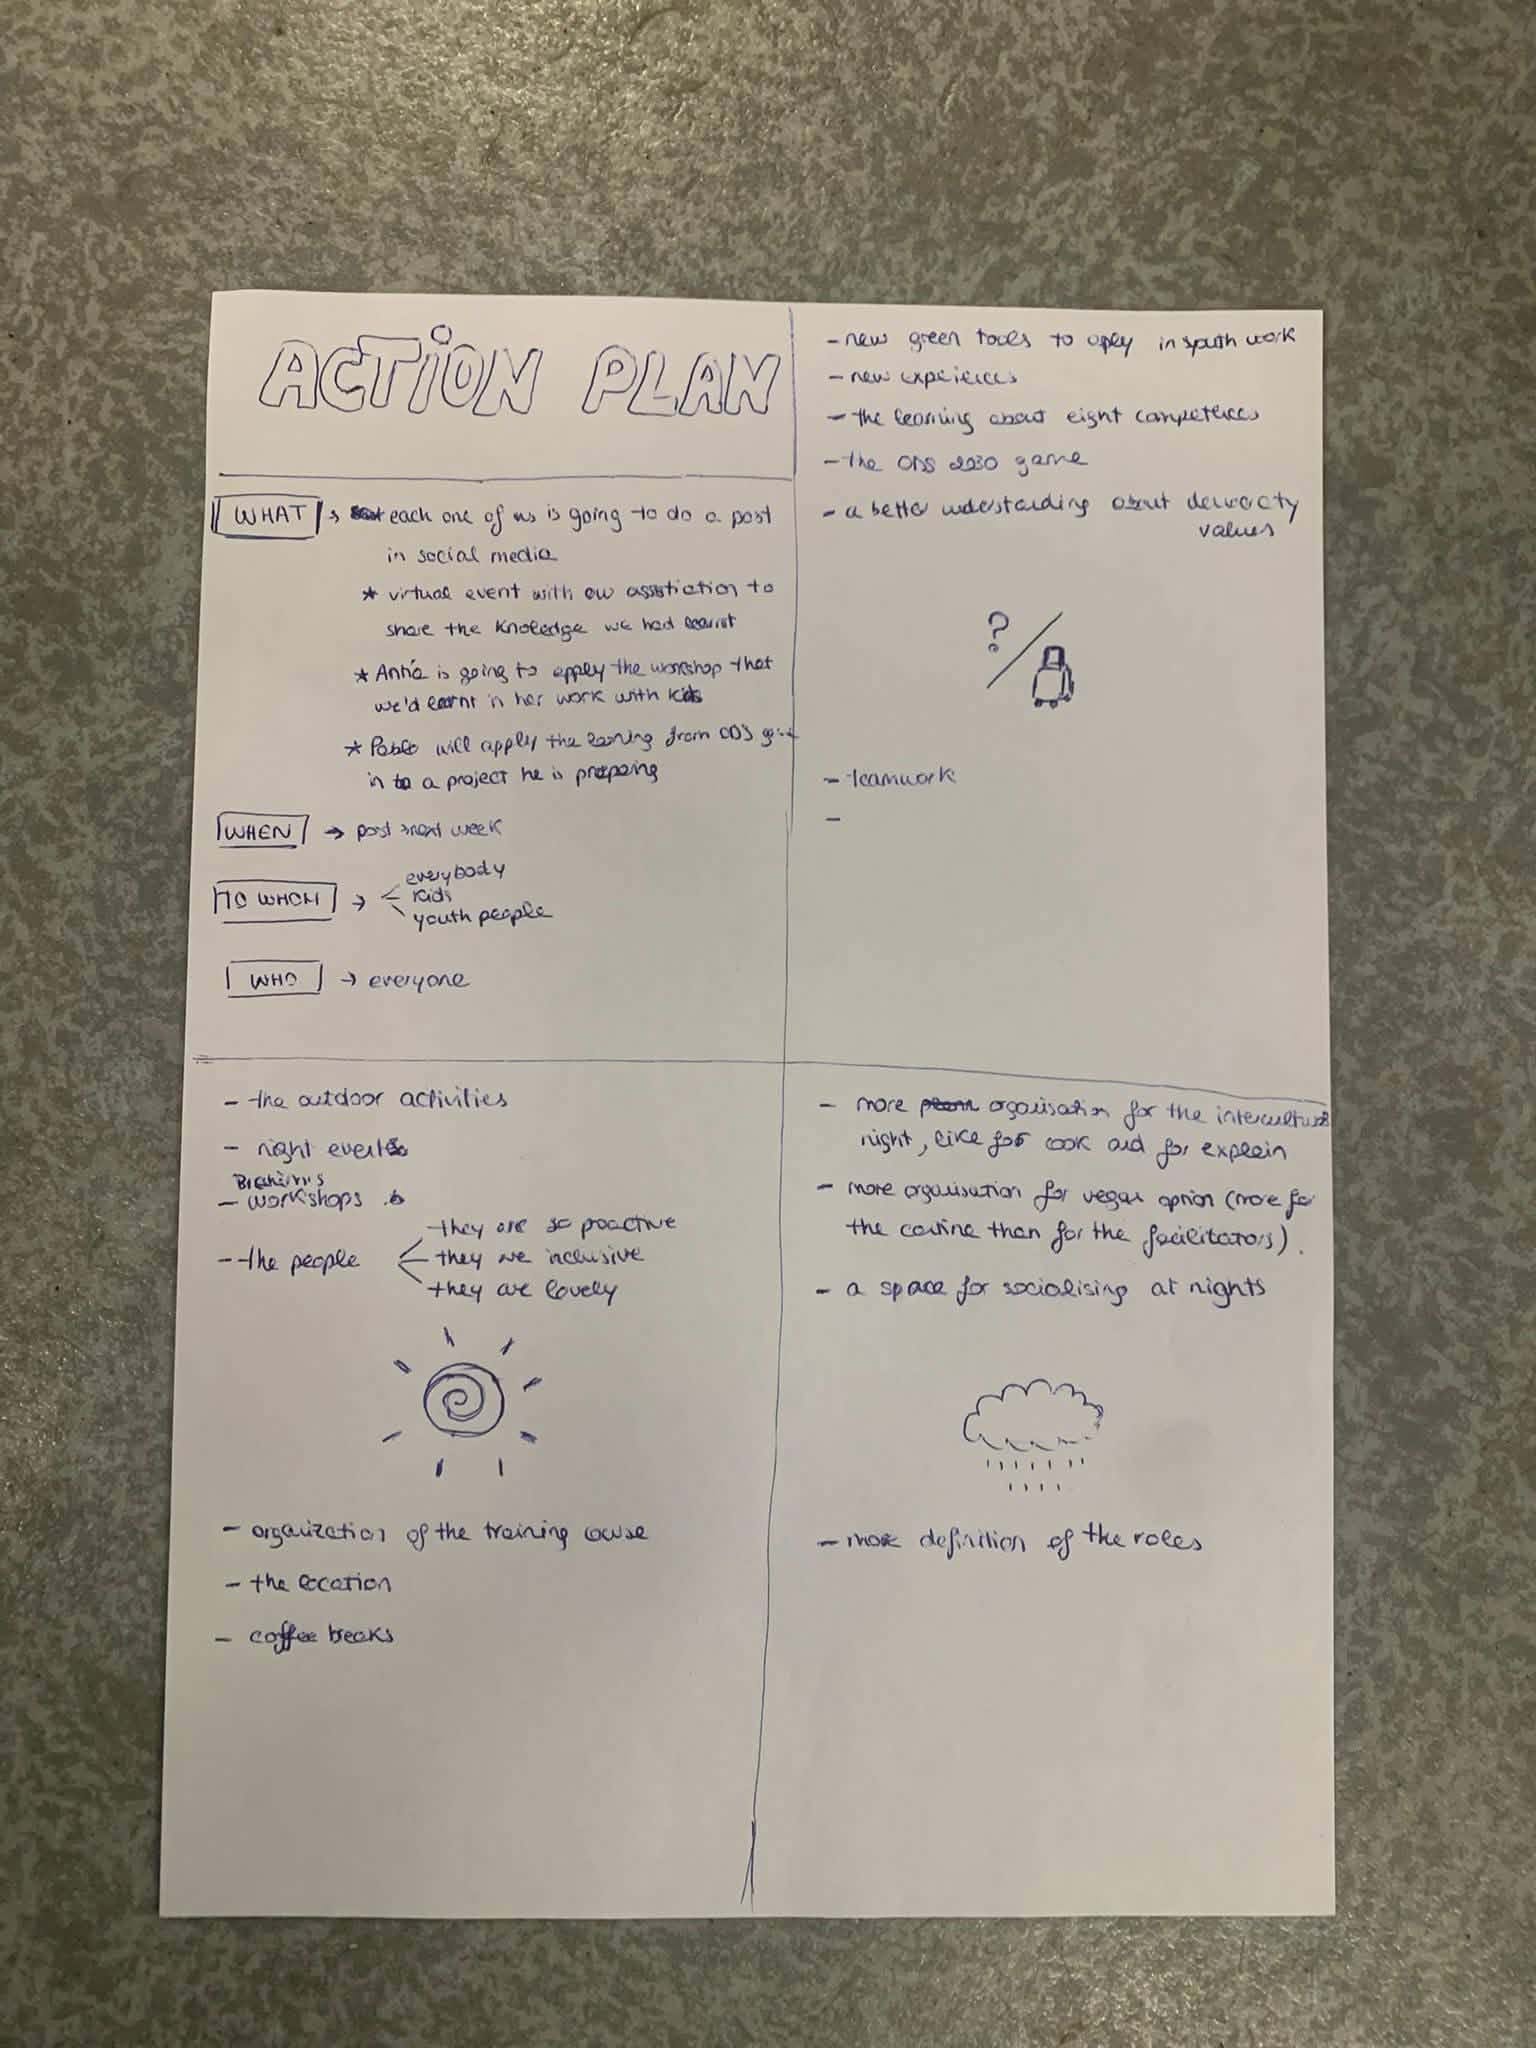 ACTION PLAN
WHAT → each one of us is going to do a post
in social media
* virtual event with our assotiation to
share the knoledge we had learnt
* Antía is going to apply the workshop that
we'd learnt in her work with kids
* Pablo will apply the learning from ODS
in to a project he is preparing
WHEN → post → next week
TO WHOM → everybody
kids
youth people
WHO → everyone
- new green tools to aply in youth work
- new expériences
- the learning about eight competences
- the ODS 2030 game
- a better understanding about
values
?
- teamwork
-
- the outdoor activities
- night events
- workshops
- the people
they are so proactive
they are inclusive
they are lovely
- organization of the training course
- the location
- coffee breaks
- more organisation for the intercultural
night, like for cook and for explain
- more organisation for vegan option (more for
the than for the facilitators).
- a space for socialising at nights
- more definition of the roles